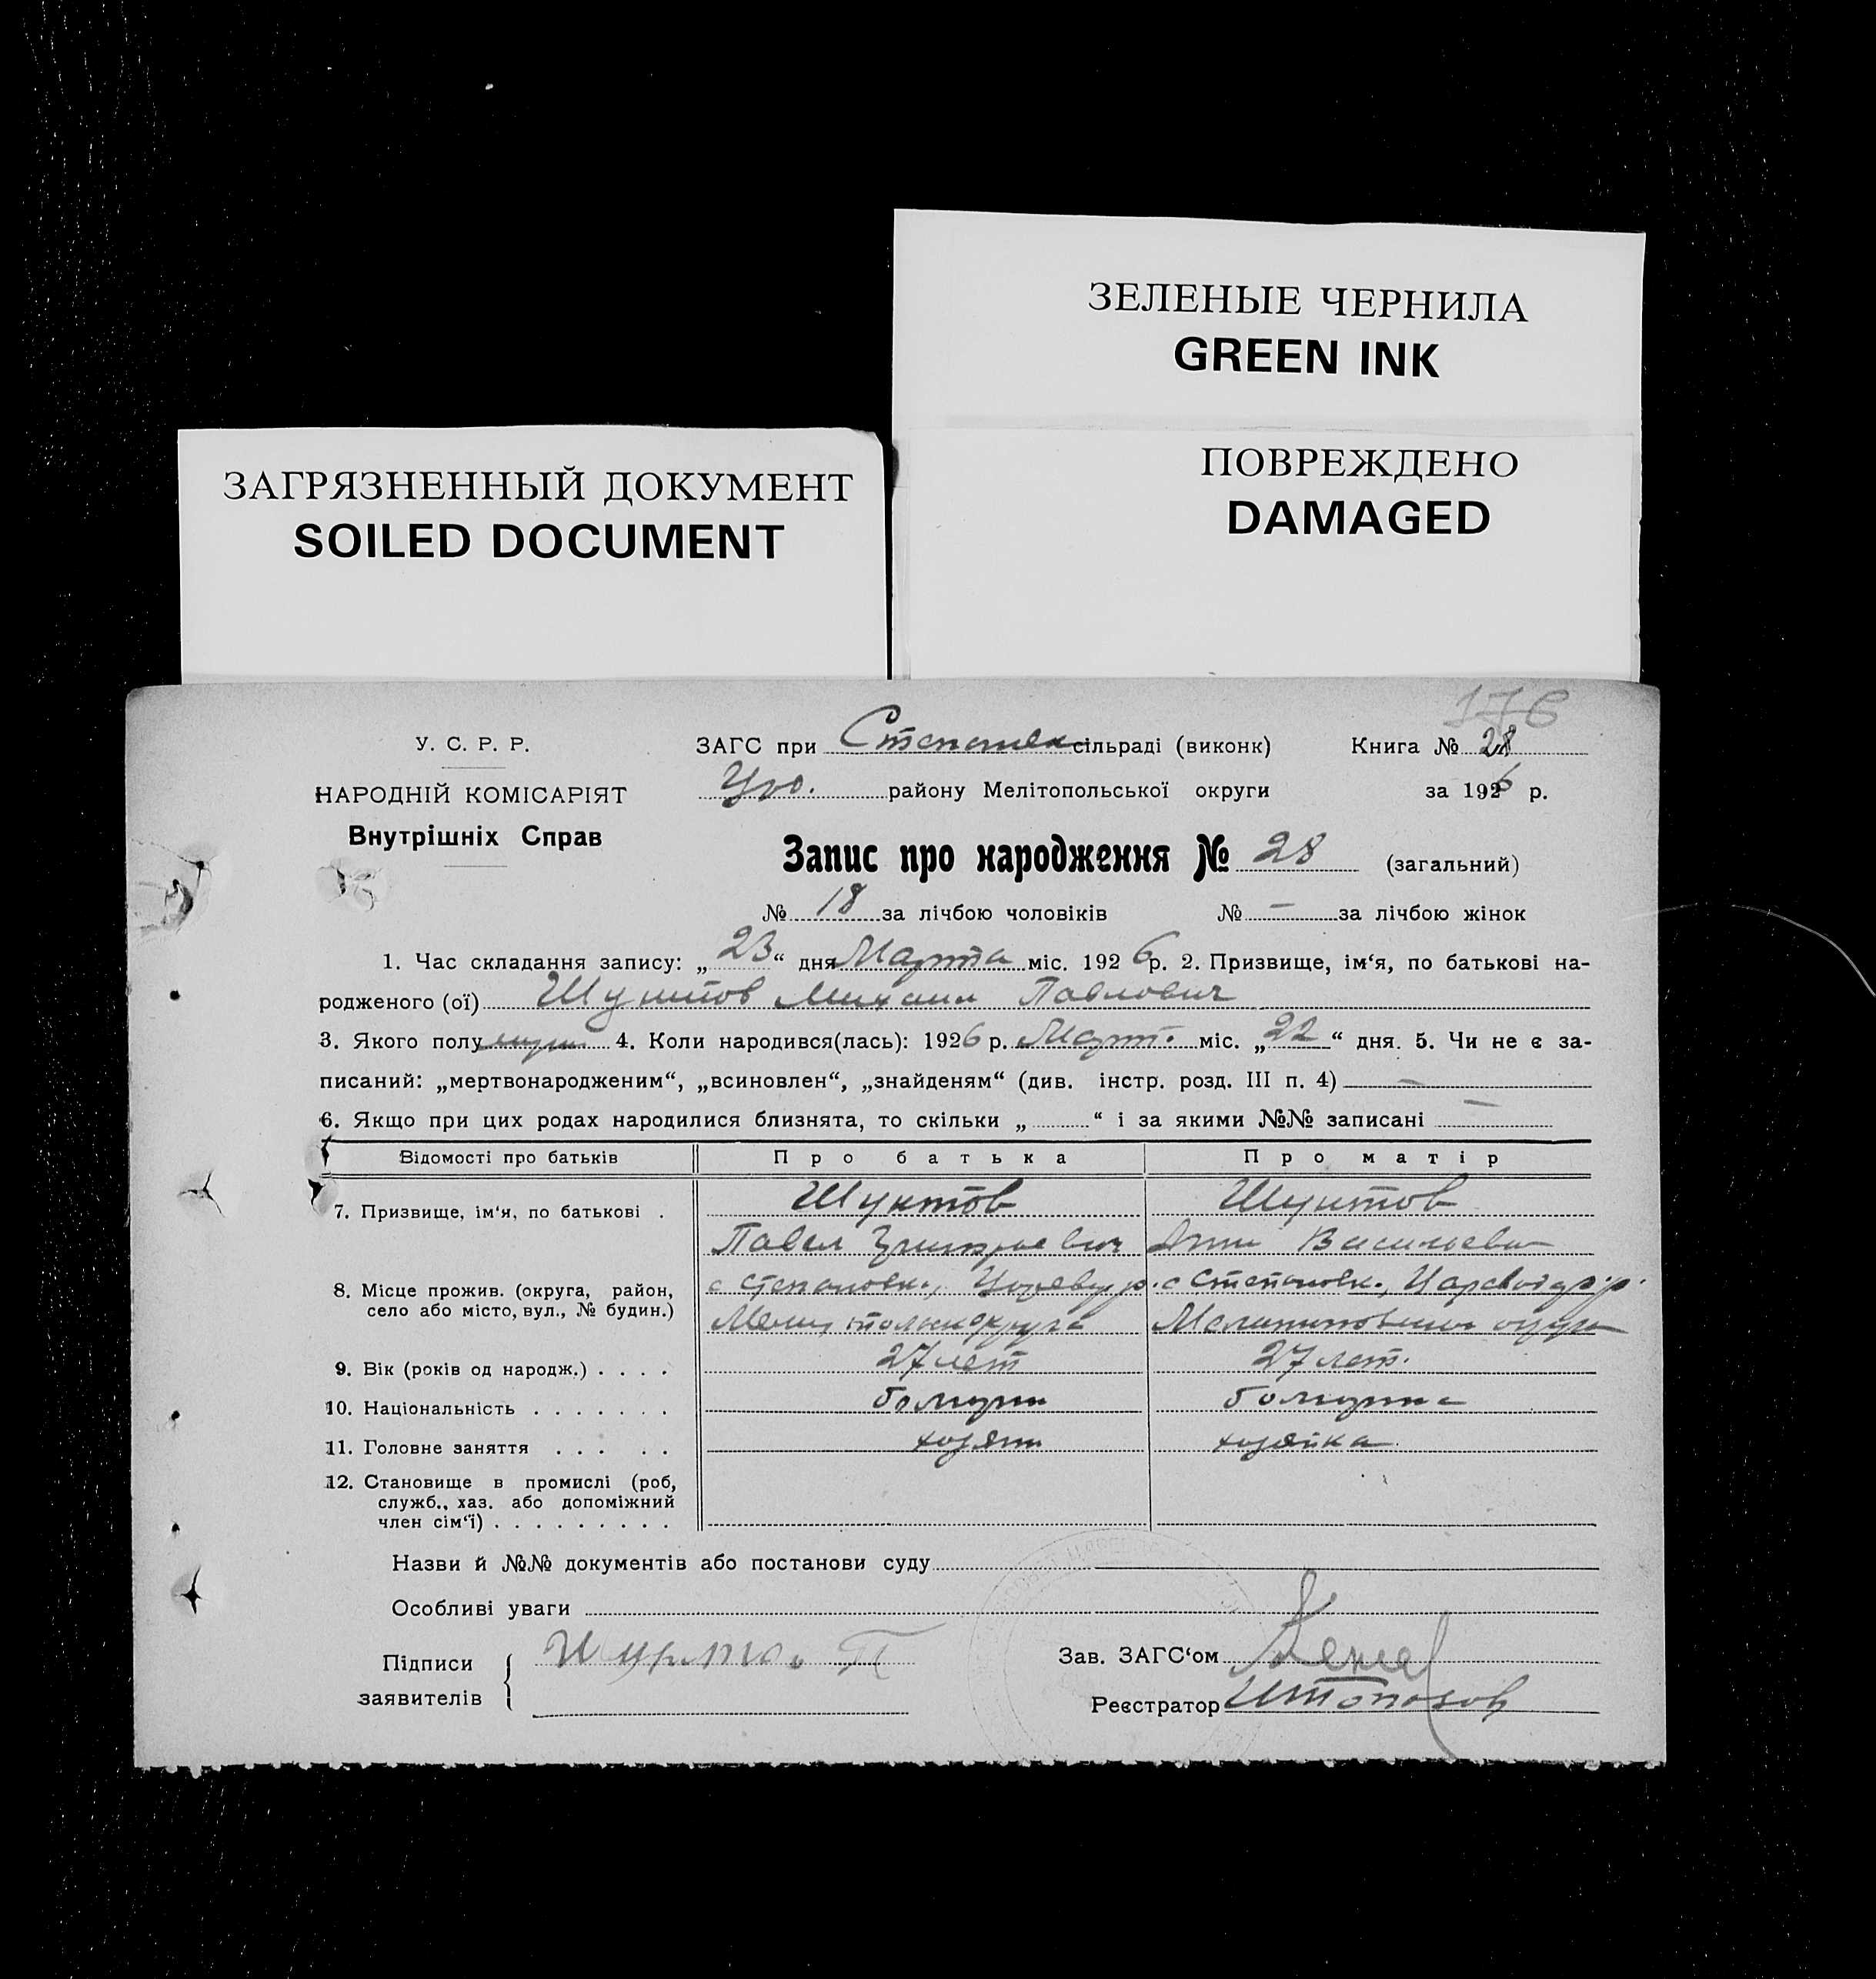 ЗЕЛЕНЫЕ ЧЕРНИЛА
GREEN INK
ПОВРЕЖДЕНО
DAMAGED
ЗАГРЯЗНЕННЫЙ ДОКУМЕНТ
SOILED DOCUMENT
176
У. С. Р. Р.
НАРОДНІЙ КОМІСАРІЯТ
Внутрішніх Справ
ЗАГС при сільраді (виконк) Книга № 28
району Мелітопольської округи за 1926 р.
Запис про народження № 28 (загальний)
№ 18 за лічбою чоловіків № — за лічбою жінок
1. Час складання запису: „23“ дня Марта міс. 1926 р. 2. Призвище, ім‘я, по батькові на-
родженого (ої) Михаил Павлович
3. Якого полу 4. Коли народився(лась): 1926 р. Март. міс. „22“ дня. 5. Чи не є за-
писаний: „мертвонародженим“, „всиновлен“, „знайденям“ (див. інстр. розд. III п. 4) —
6. Якщо при цих родах народилися близнята, то скільки „ “ і за якими №№ записані —
Відомості про батьків Про батька Про матір
7. Призвище, ім‘я, по батькові .
Павел
8. Місце прожив. (округа, район,
село або місто, вул., № будин.)
с Степановк., с Степановк.,
9. Вік (років од народж.) . . . . 27 лет 27 лет.
10. Національність . . . . . . . болгарин болгарка
11. Головне заняття . . . . . хозяин хозяйка
12. Становище в промислі (роб,
служб., хаз. або допоміжний
член сім‘ї) . . . . . . . . .
Назви й №№ документів або постанови суду
Особливі уваги
Підписи
заявителів
Зав. ЗАГС‘ом
Реєстратор